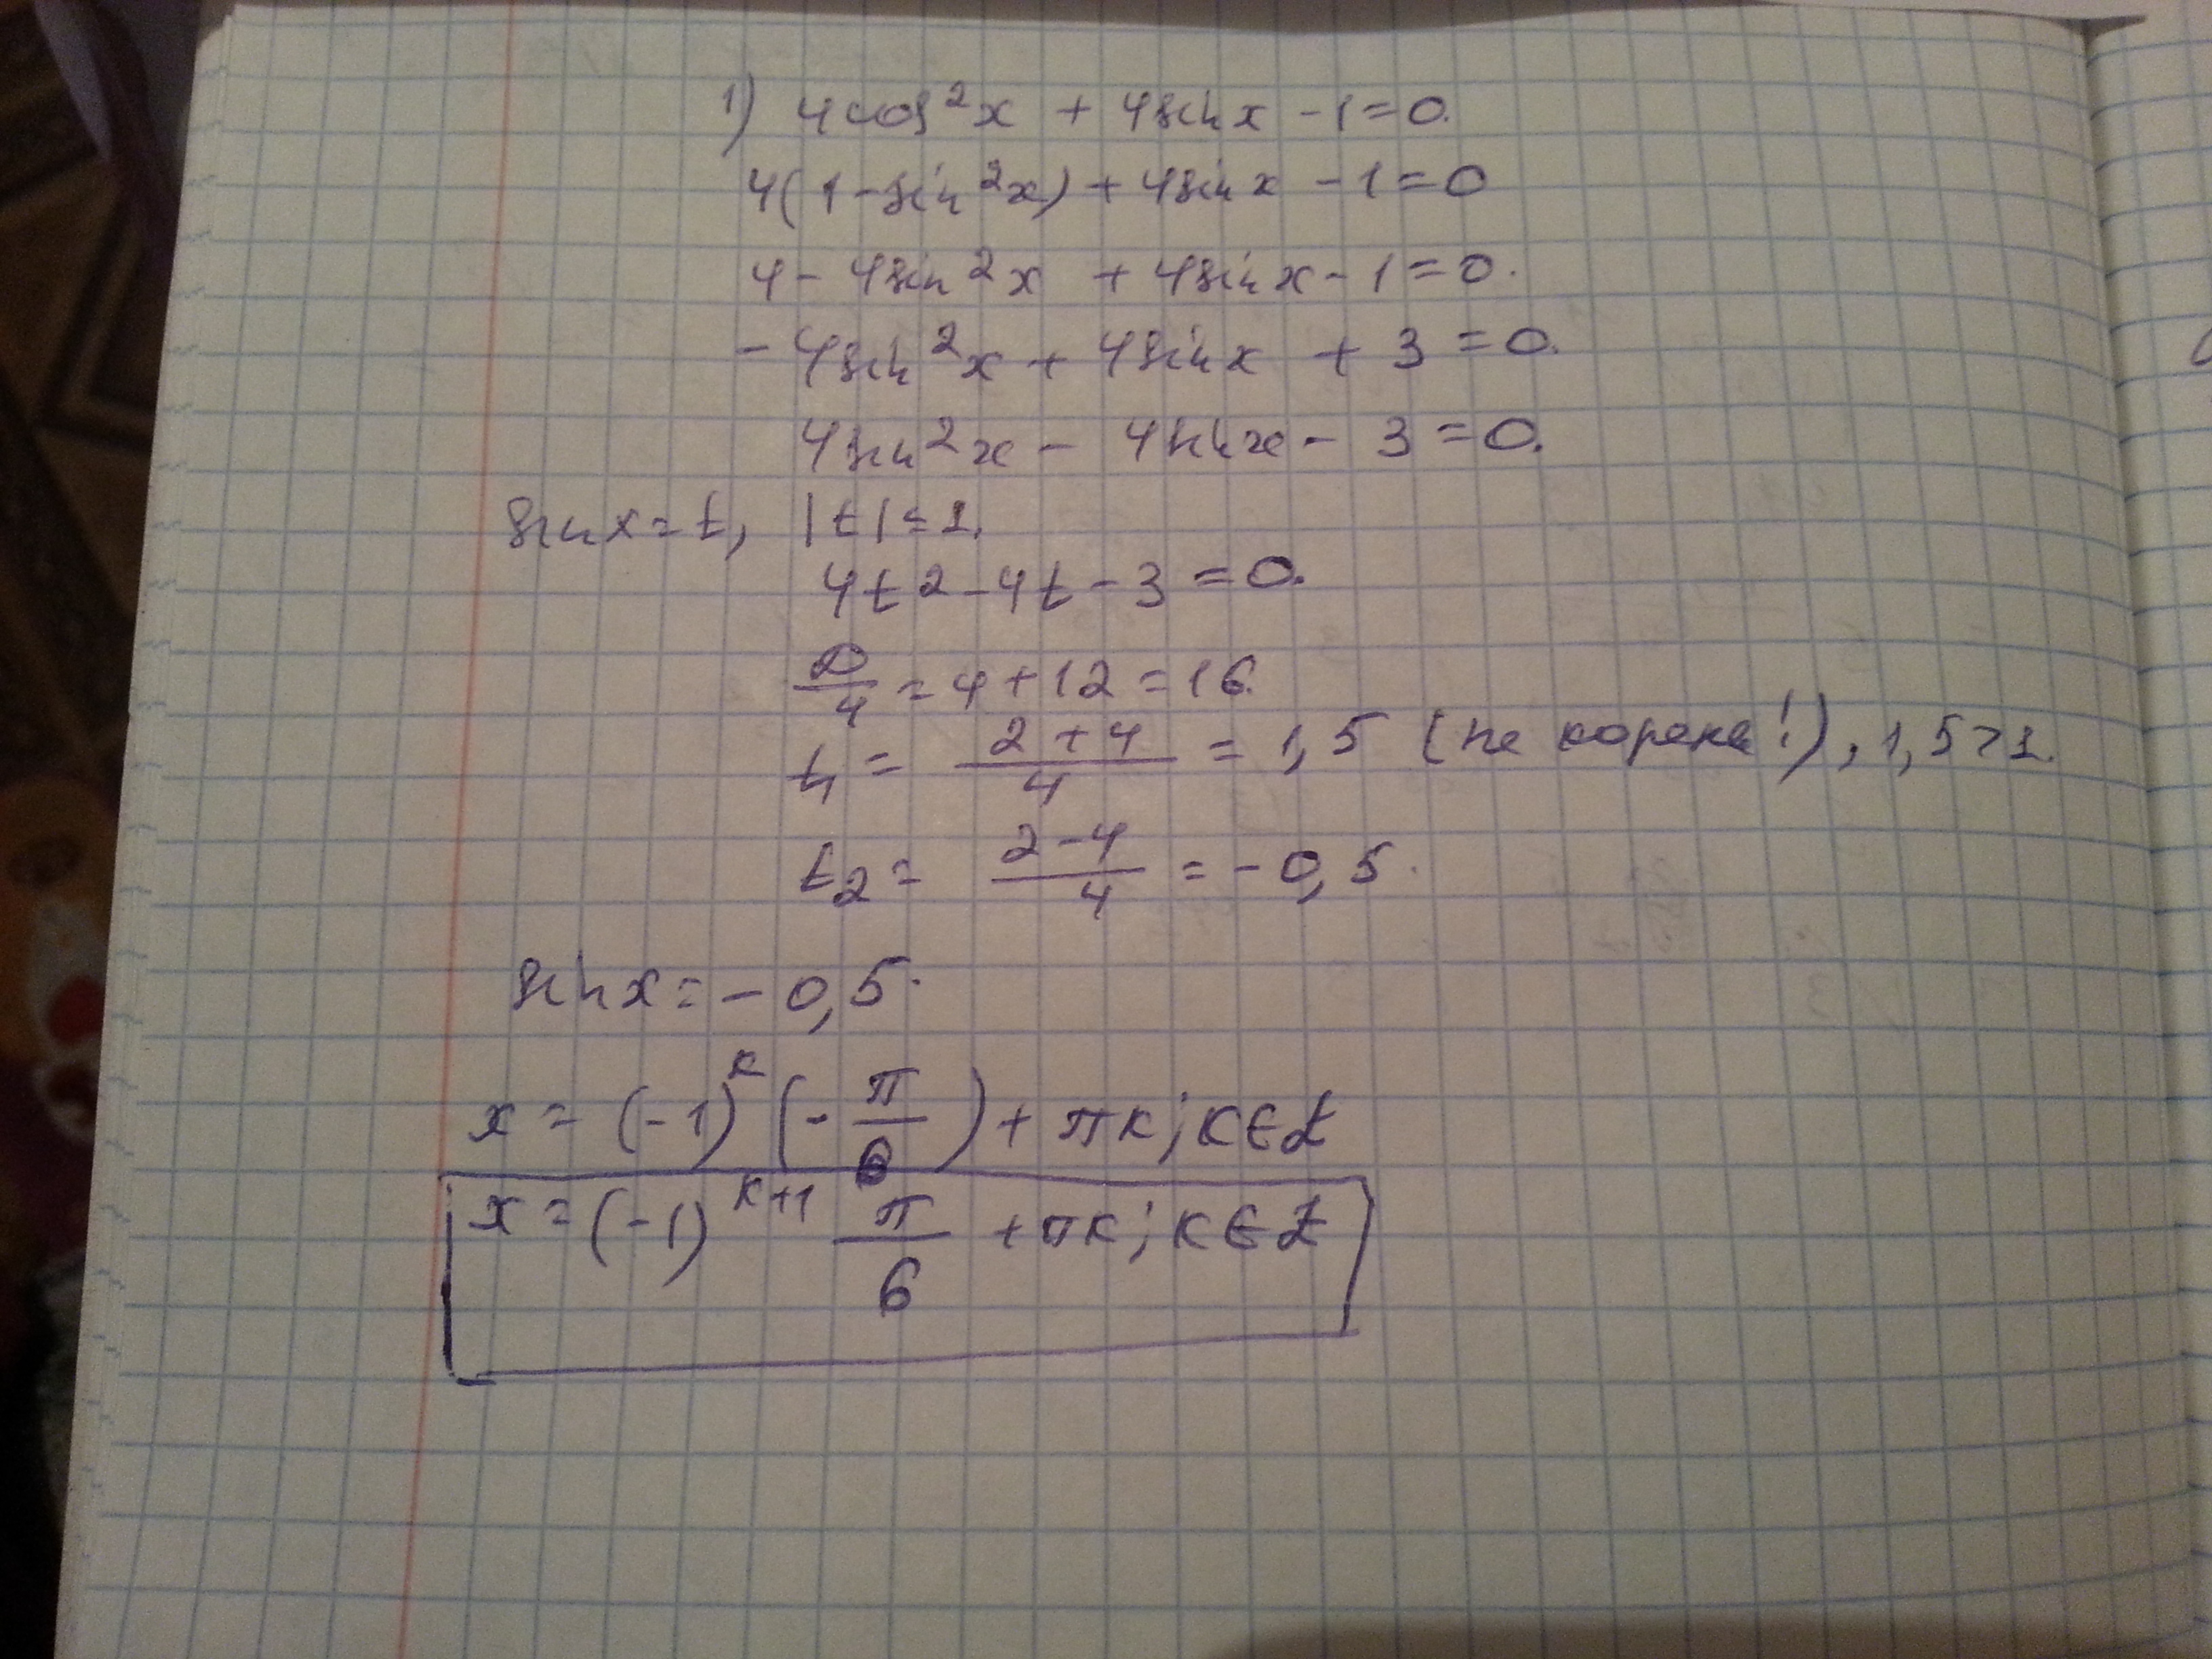 1) 4cos²x + 4sinx - 1 = 0.
4(1 - sin²x) + 4sinx - 1 = 0
4 - 4sin²x + 4sinx - 1 = 0.
- 4sin²x + 4sinx + 3 = 0.
4sin²x - 4sinx - 3 = 0.
sinx = t, |t| ≤ 1.
4t2 - 4t - 3 = 0.
D/4 = 4 + 12 = 16.
t₁ = (2 + 4)/4 = 1,5 (не корень!), 1,5 > 1.
t₂ = (2 - 4)/4 = - 0,5.
sinx = - 0,5.
x = (-1)^k (- π/6) + πk; k ∈ Z
x = (-1)^(k+1) π/6 + πk; k ∈ Z